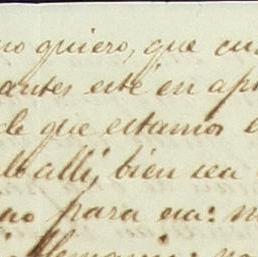 no quiero, que cu
antes esté en ap
de que estamos e
alli, bien sea
no para esa: n
Alemania: no